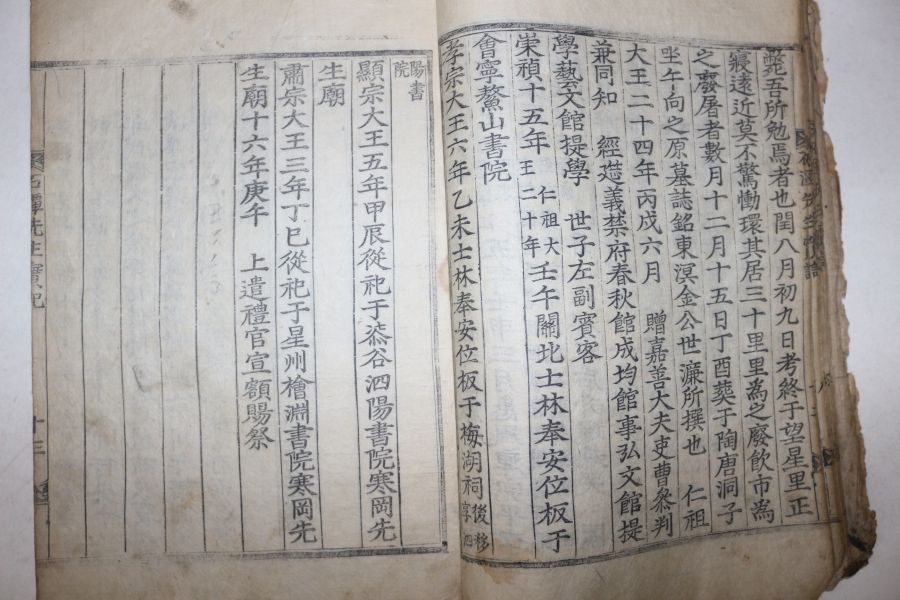 斃吾所勉焉者也閏八月初九日考終于望星里正
寢遠近莫不驚慟環其居三十里里為之廢飲市為
之廢屠者數月十二月十五日丁酉葬于陶唐洞子
坐午向之原墓誌銘東溟金公世濂所撰也 仁祖
大王二十四年丙戌六月 贈嘉善大夫吏曹叅判
兼同知 經筵義禁府春秋館成均館事弘文館提
學藝文館提學 世子左副賓客
崇禎十五年 仁祖大王二十年 壬午關北士林奉安位板于
會寧鰲山書院
孝宗大王六年乙未士林奉安位板于梅湖祠 後移享泗
陽書院
顯宗大王五年甲辰從祀于泗陽書院寒岡先
生廟
肅宗大王三年丁巳從祀于星州檜淵書院寒岡先
生廟十六年庚午 上遣禮官宣額賜祭
石潭先生實記
十三